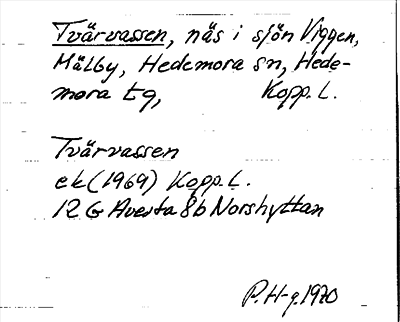 Tvärvassen, näs i sjön Viggen,
Mälby, Hedemora sn, Hede-
mora tg, Kopp. L.
Tvärvassen
ek (1969) Kopp. L.
12 G Avesta 8b Norshyttan
P. H-g. 1970